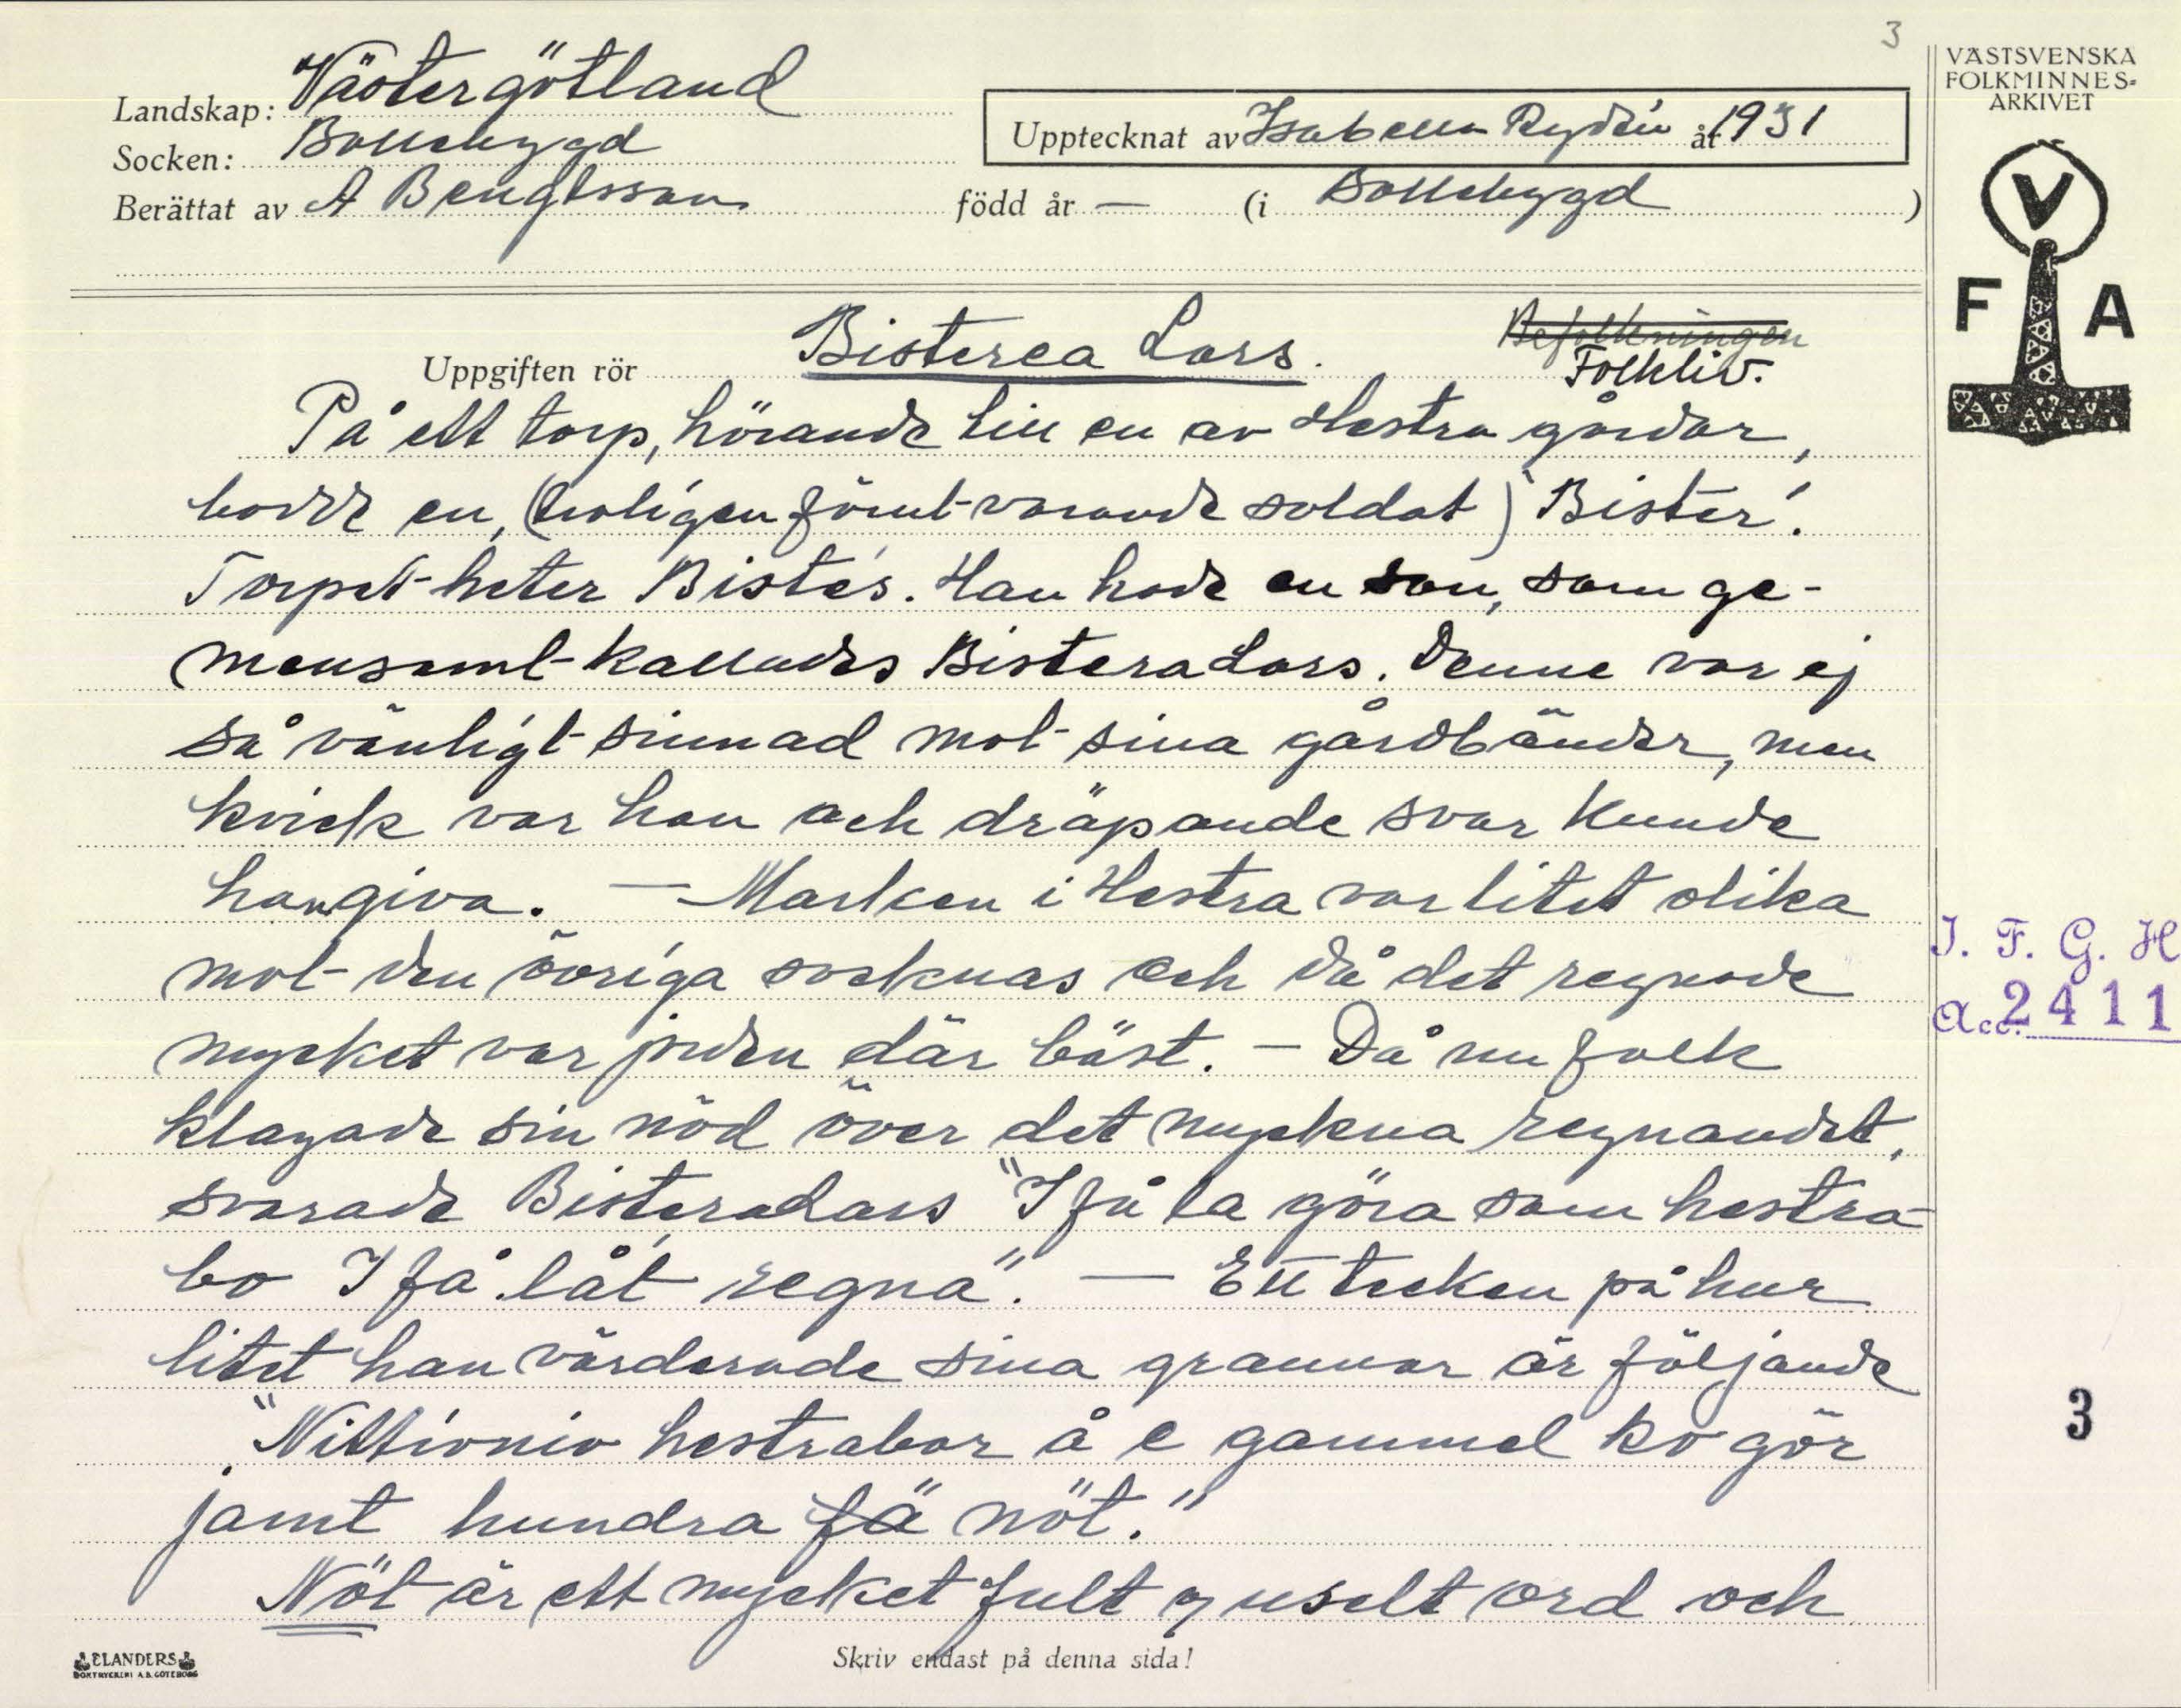 3
VÄSTSVENSKA
FOLKMINNES-
ARKIVET
Landskap: Västergötland
Socken: Bollebygd
Upptecknat av Isabella Rydén år 1931
Berättat av A Bengtsson född år — (i Bollebygd )
V
F A
Uppgiften rör Bistera Lars. Befolkningen
Folkliv.
På ett torp, hörande till en av Hestra gårdar,
bodde en, (troligen förut varande soldat) Bister'.
Torpet heter Bistés. Han hade en son, som ge-
mensamt kallades BisteraLars. Denne var ej
så vänligt sinnad mot sina gårdbönder, men
kvick var han och dräpande svar kunde
han giva. — Marken i Hestra var litet olika
mot den övriga socknas och då det regnade
mycket var jorden där bäst. — Då nu folk
klagade sin nöd över det myckna regnandet,
svarade BisteraLars "I få la göra som hestra-
bo I få låt regna". — Ett tecken på hur
litet han värderade sina grannar är följande
"Nittionio hestrabor å e gammel ko gör
jamt hundra fä nöt."
Nöt är ett mycket fult o uselt ord och
I. F. G. H
Acc. 2411
3
ELANDERS
BOKTRYCKERI A.B. GÖTEBORG
Skriv endast på denna sida!